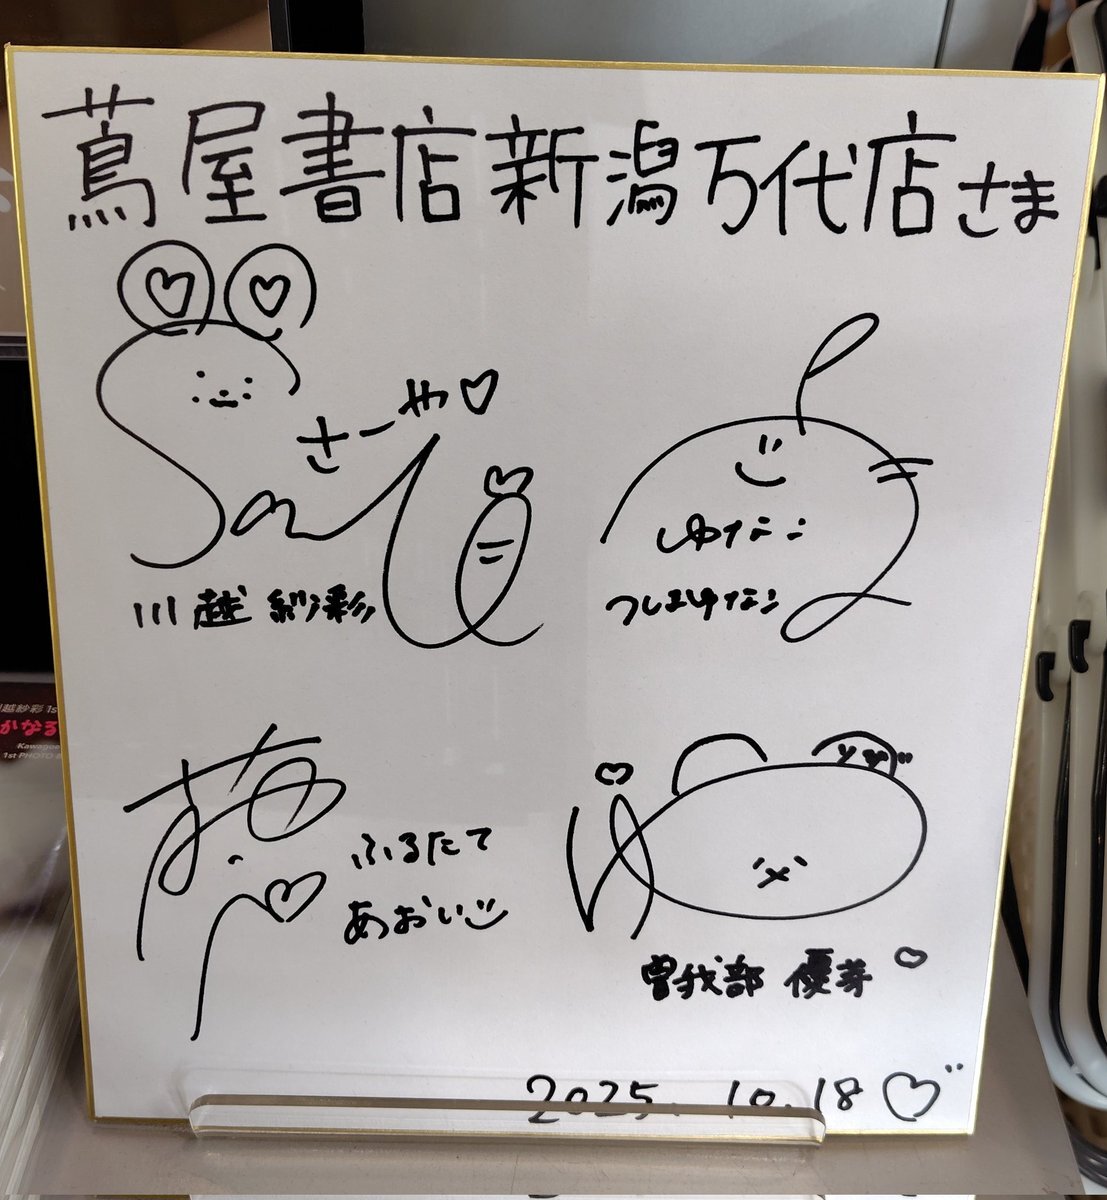 蔦屋書店新潟万代店さま
さーや♡
川越 紗彩
ゆなこ
つしまゆなこ
ふるたて
あおい
ゆめ
曽我部 優芽
2025. 10. 18
越紗彩 1s
かなる
Kawagoe
1st PHOTO B